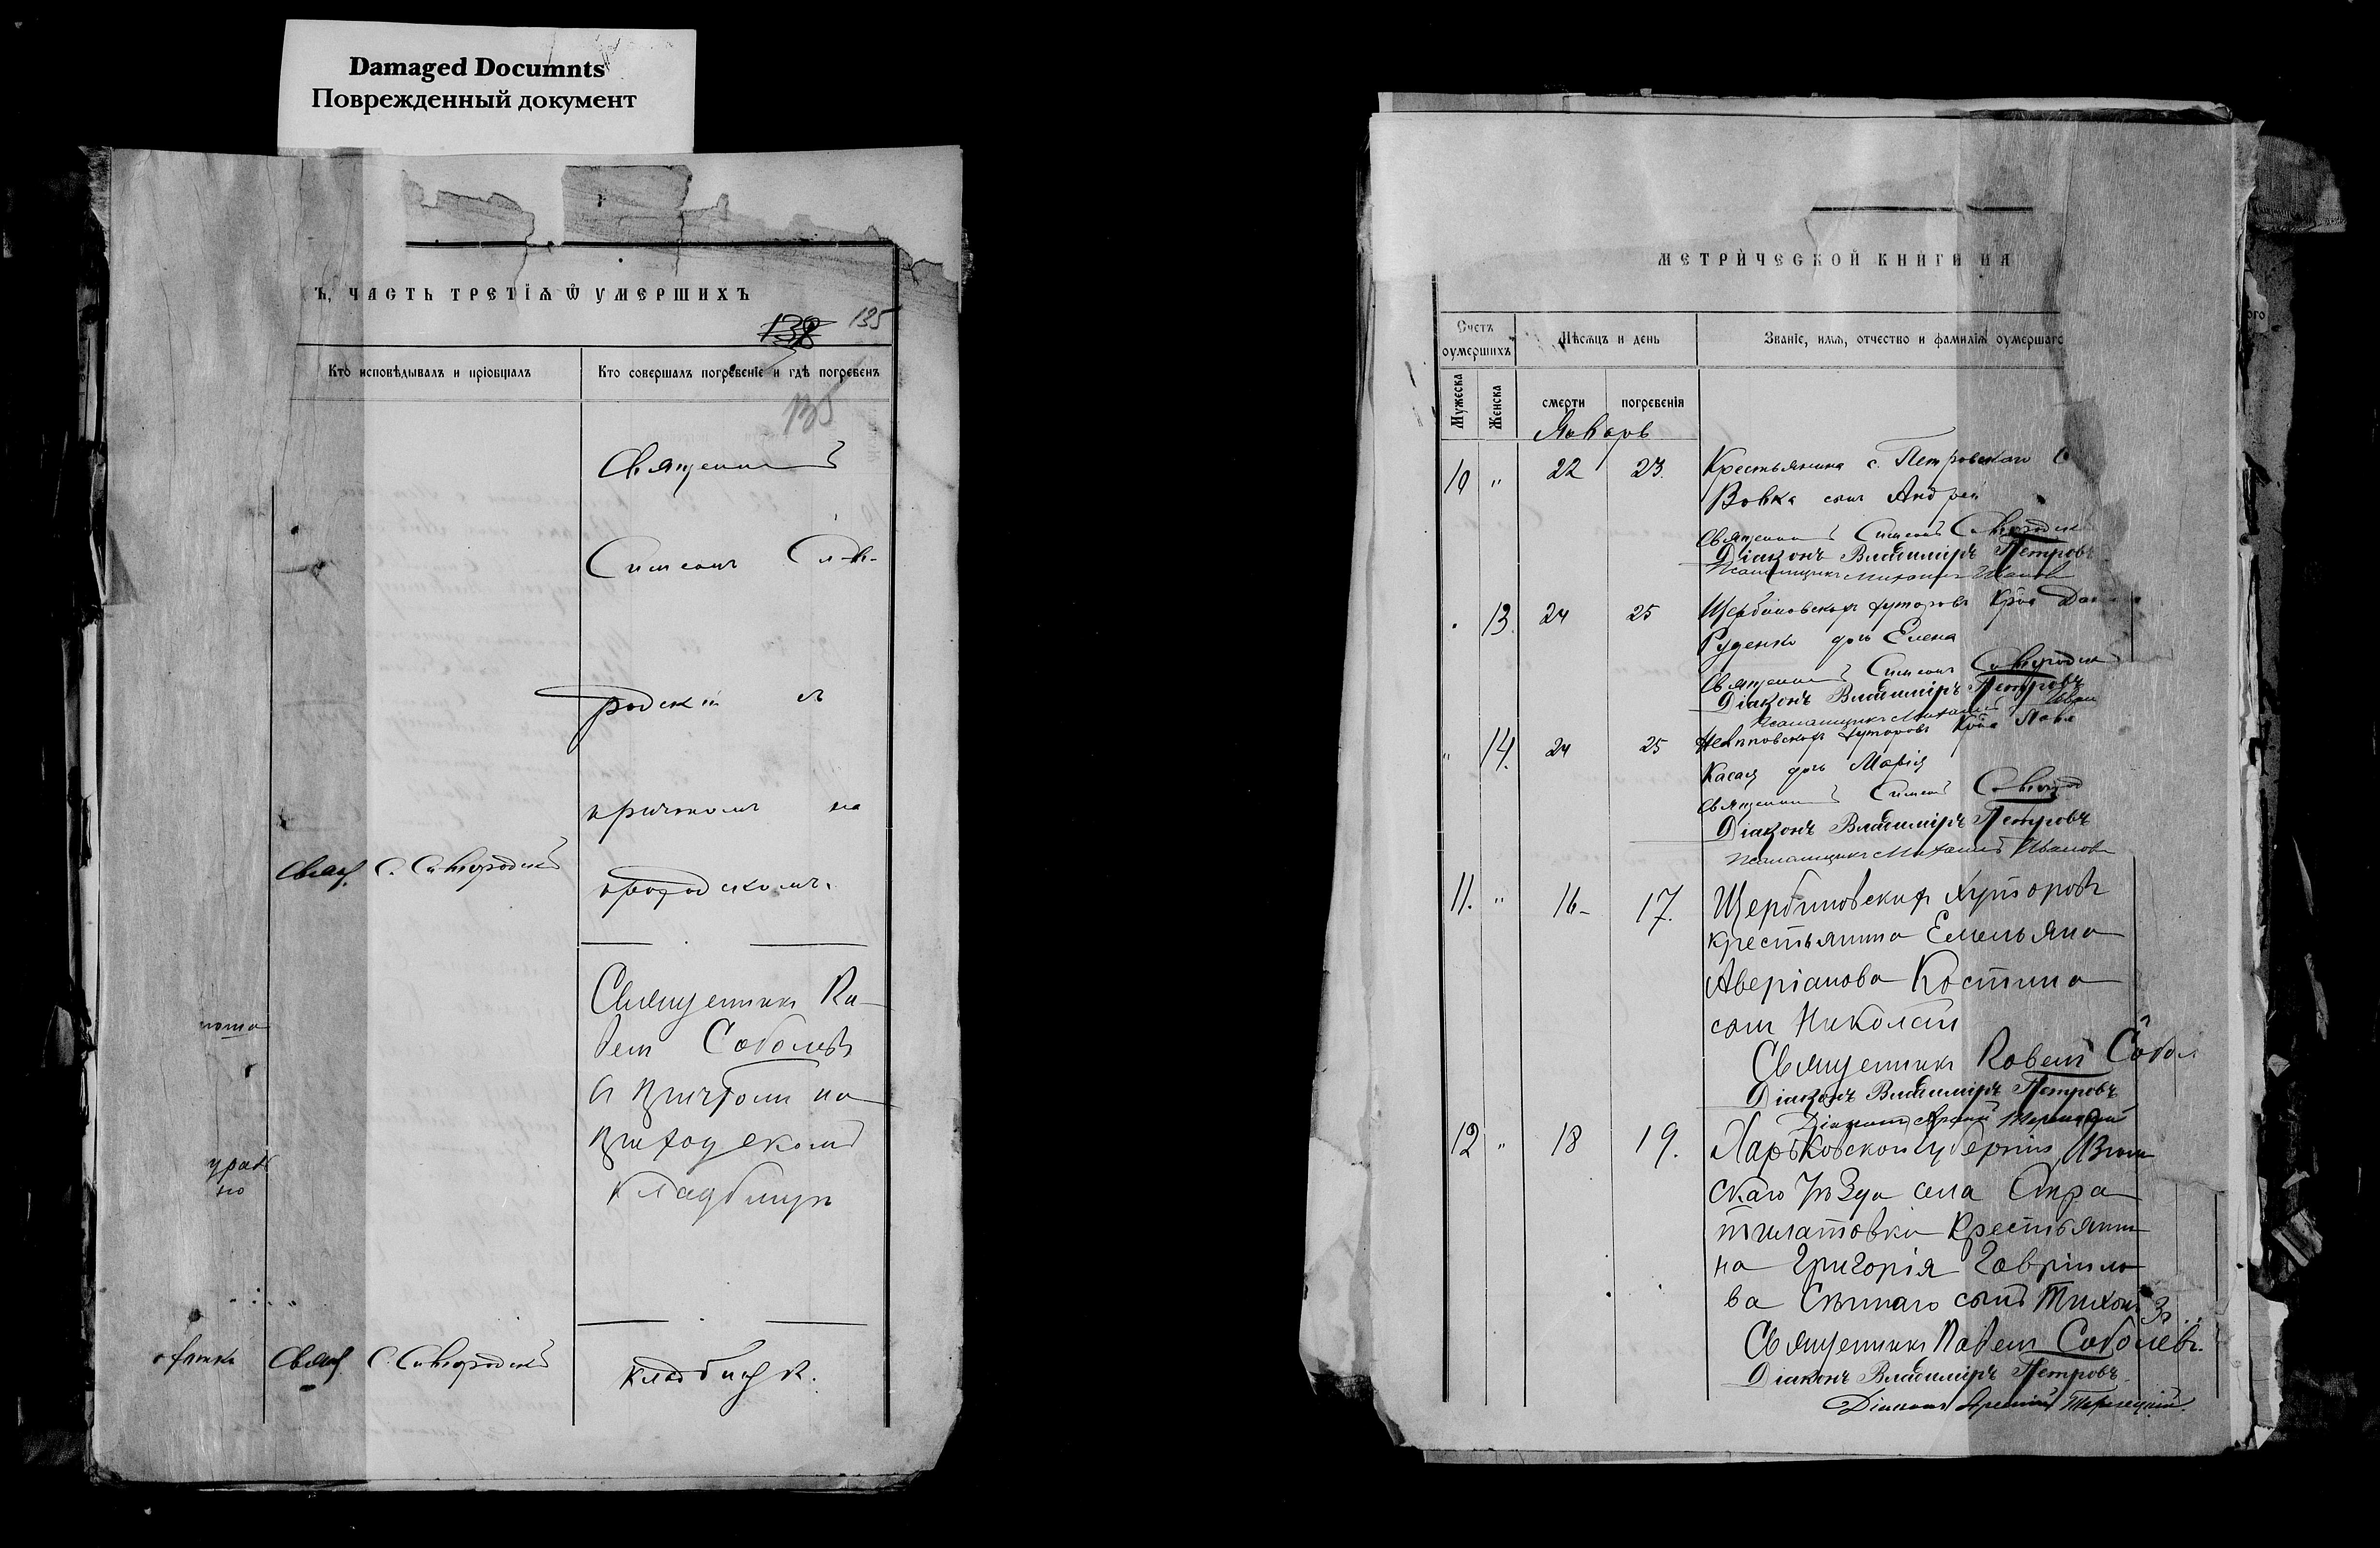 Damaged Documnts
Поврежденный документ
Ъ, ЧАСТЬ ТРЕТІѦ Ѿ УМЕРШИХЪ
138 135
Кто исповѣдывалъ и пріобщалъ
Кто совершалъ погребеніе и гдѣ погребенъ
135
Священникъ
Симеонъ
родскій съ
причтомъ на
Свящ. С.
приходскомъ.
Священникъ Па-
велъ Соболевъ
съ причтомъ на
приходскомъ
кладбищѣ
Свящ. С.
кладбищѣ.
МЕТРИЧЕСКОЙ КНИГИ НА
Счетъ оумершихъ
Мѣсяцъ и день
Званіе, имя, отчество и фамилія оумершаго
Мужеска
Женска
смерти
погребенія
Январь
10 " 22 23. Крестьянина с. Петровскаго
Вовка сынъ Андрей
Священникъ Симеонъ
Діаконъ Владиміръ Петровъ
Псаломщикъ Михаилъ Иванов
13. 24 25 Щербиновскихъ хуторовъ
Руденко дочь Елена
Священникъ Симеонъ
Діаконъ Владиміръ Петровъ
Псаломщикъ Михаилъ Иван
" 14. 24 25 хуторовъ
дочь Марія
Священникъ Симеонъ
Діаконъ Владиміръ Петровъ
Псаломщикъ Михаилъ Иванов
11. " 16 17. Щербиновскихъ хуторовъ
крестьянина Емельяна
Аверіанова Костина
сынъ Николай
Священникъ Павелъ Собол
Діаконъ Владиміръ Петровъ
Діаконъ Арсеній Терлецкій
12 " 18 19. Харьковской губерніи Изюм
скаго уѣзда села Стра
тилатовки крестьяни
на Григорія Гаврило
ва сынъ Тихонъ
Священникъ Павелъ Соболевъ.
Діаконъ Владиміръ Петровъ
Діаконъ Арсеній Терлецкій.